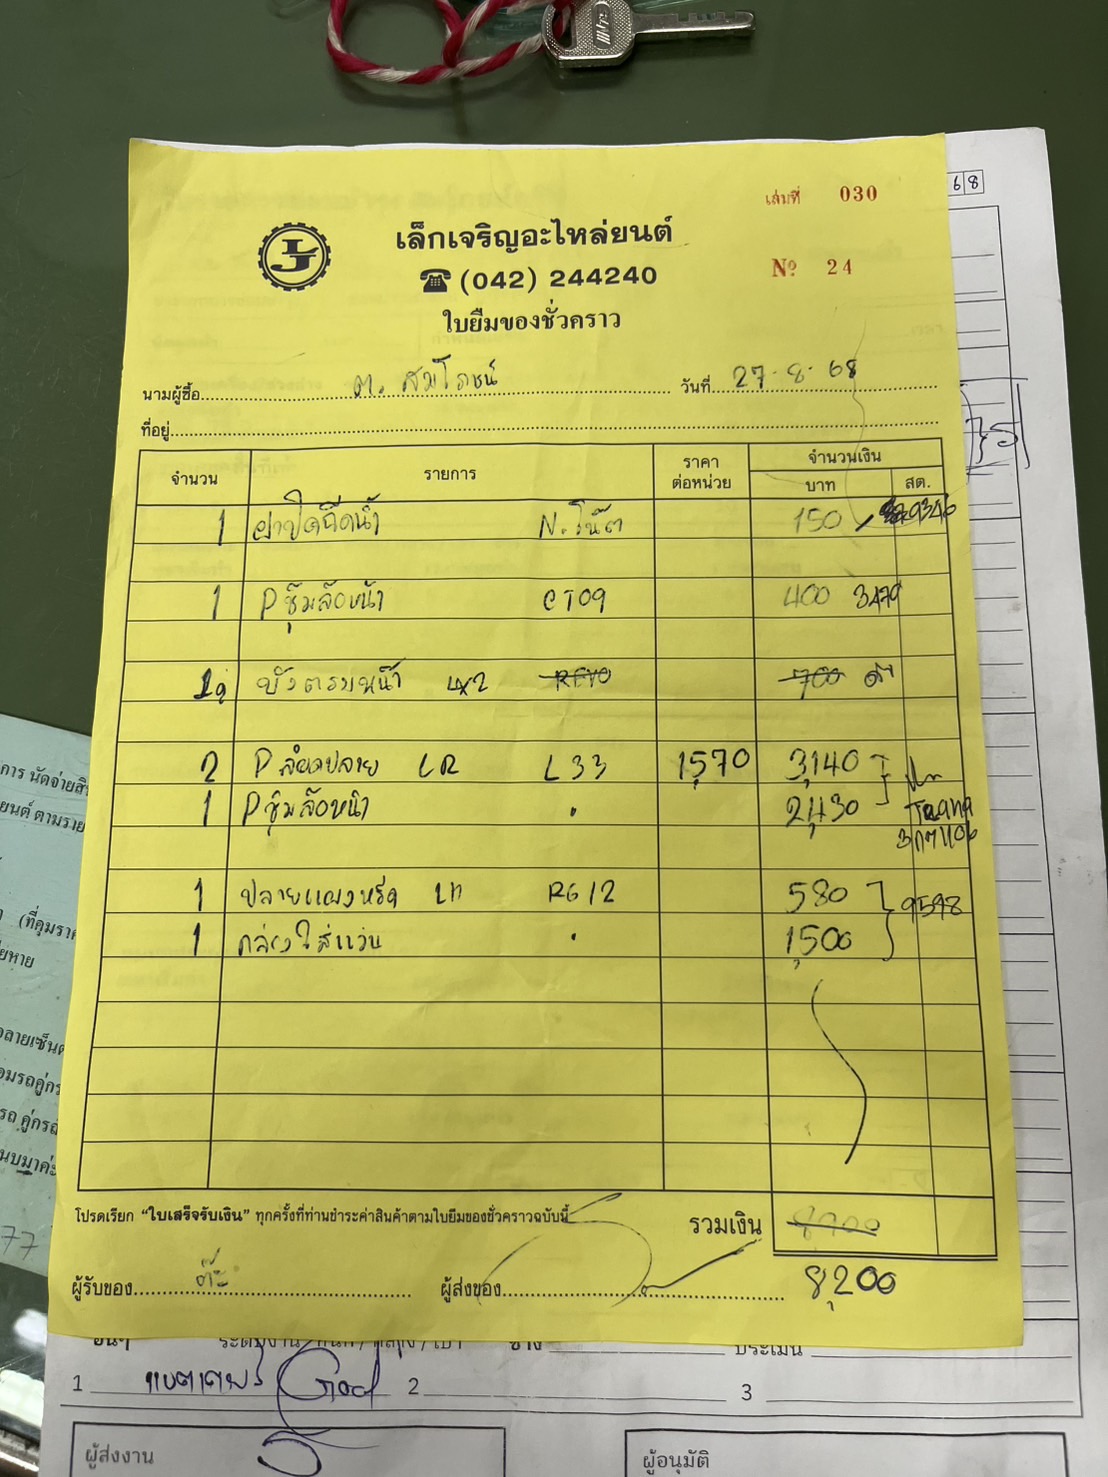 68
เล่มที่ 030
LJ
เล็กเจริญอะไหล่ยนต์
☎ (042) 244240
Nº 24
ใบยืมของชั่วคราว
นามผู้ซื้อ ต. สมโภชน์ วันที่ 27-8-68
ที่อยู่
จำนวน รายการ ราคาต่อหน่วย จำนวนเงิน บาท สต.
1 ฝาปิดฉีดน้ำ N. โน๊ต 150
1 Pซุ้มล้อหน้า CT09 400 3479
บังตรมหน้า 4x2 REVO 700
2 P LR L33 1,570 3,140
1 Pซุ้มล้อหน้า " 2,430
1 ปลายแผงหรีด LH RG12 580 9598
1 กล่องใส่แว่น " 1,500
โปรดเรียก “ใบเสร็จรับเงิน” ทุกครั้งที่ท่านชำระค่าสินค้าตามใบยืมของชั่วคราวฉบับนี้ รวมเงิน 8900
8,200
ผู้รับของ ต๊ะ ผู้ส่งของ
การ นัดจ่ายสิ
ยนต์ ตามราย
(ที่คุมรา
ยหาย
วลายเซ็นต
อมรถคู่กร
รถ คู่กรณ
นบมาค่ะ
77
อื่นๆ ช่าง ประเมิน
1 God 2 3
ผู้ส่งงาน ผู้อนุมัติ